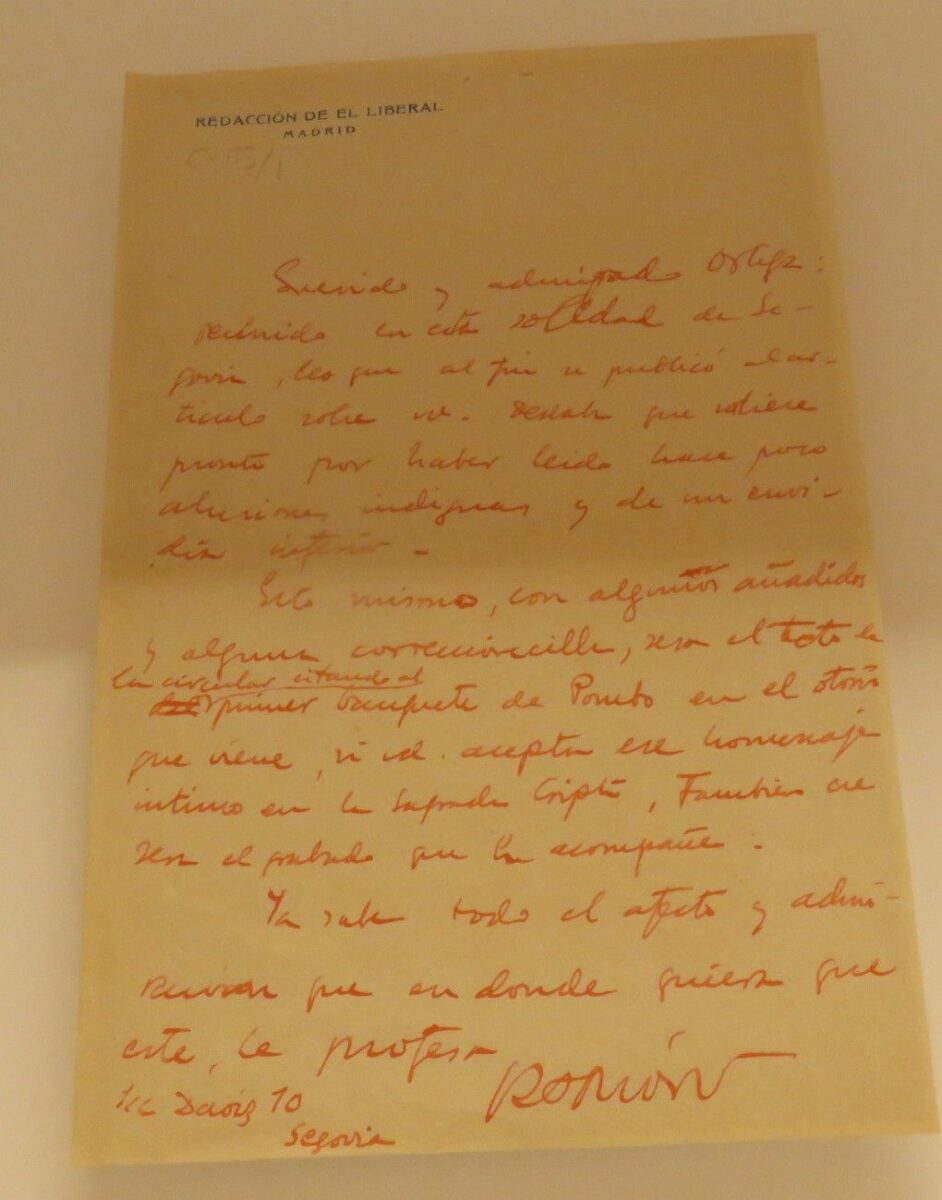 REDACCIÓN DE EL LIBERAL
MADRID
Querido y admirado Ortega:
recluido en esta soledad de Se-
govia, leo que al fin se publicó el ar-
tículo sobre vd. Deseaba que saliese
pronto por haber leido hace poco
alusiones indignas y de un envi-
dia
Esto mismo, con algunos añadidos
y alguna correccioncilla, sera el texto en
la circular citando al
primer banquete de Pombo en el otoño
que viene, si vd. acepta ese homenaje
intimo en la Sagrada Cripta, Tambien ese
sera el grabado que la acompañe.
Ya sabe todo el afecto y admi-
racion que en donde quiera que
este, le profesa
RAMÓN
s/c Daoiz 10
Segovia